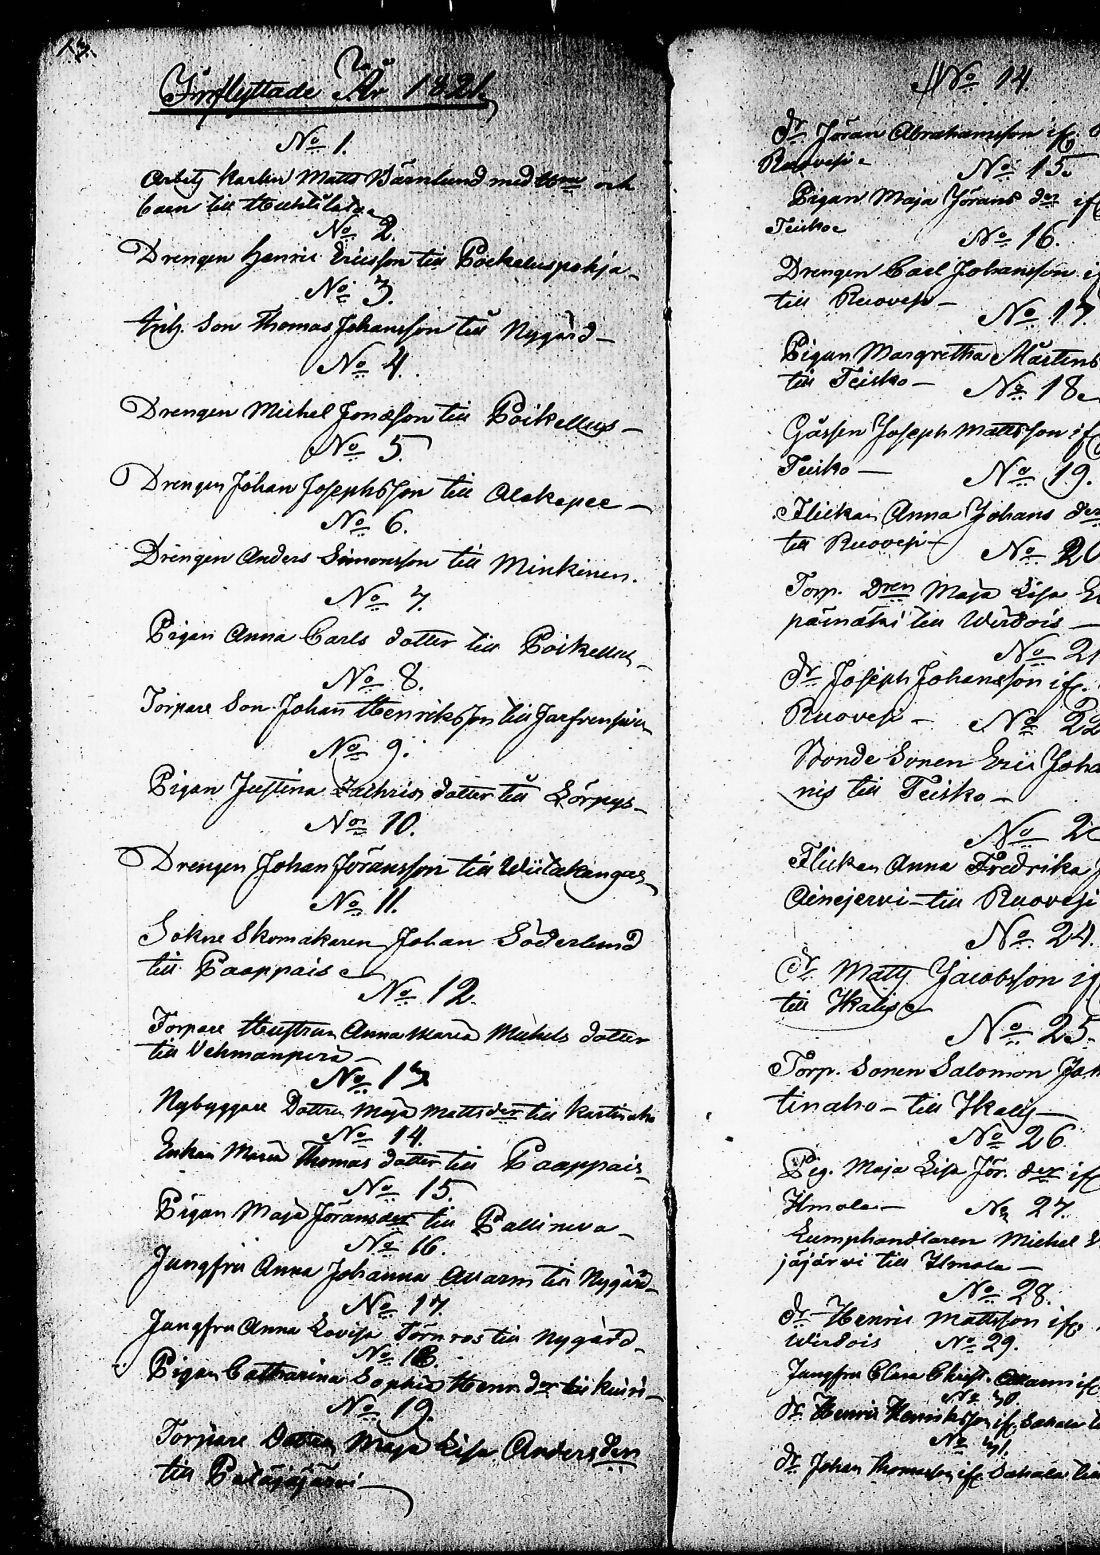 13.
Inflyttade År 1821
No 1.
Arbetz Karlen Matts Wärnlund med Hu och
Barn till
No 2.
Drengen Henric Ericsson till
No 3.
Son Thomas Johansson till Nygård —
No 4.
Drengen Michel Jonasson till Poikellus —
No 5.
Drengen Johan Josephsson till Alakepee —
No 6.
Drengen Anders Simonsson till Minkinen.
No 7.
Pigan Anna Carls dotter till Poikellus —
No 8.
Torpare Son Johan Henriksson till
No 9.
Pigan Justina Zachris dotter till Lörpys —
No 10.
Drengen Johan Jöransson till Wiitakangas
No 11.
Sokne Skomakaren Johan Söderlund
till Paappais
No 12.
Torpare Hustrun Anna Maria Michels dotter
till Vehmanperä —
No 13
Nybyggare Dottren Maja Mattsder till
No 14.
Enkan Maria Thomas dotter till Paappais
No 15.
Pigan Maja Jöransder till Pallineva —
No 16.
Jungfru Anna Johanna Allarm till Nygård —
No 17.
Jungfru Anna Lovisa Törnros till Nygård —
No 18.
Pigan Catharina Sophia Henr. der till
No 19.
Torpare Dottren Maja Lisa Andersden
till Peräjäjärvi —
No 14.
Dr. Jöran Abrahamsson if.
Ruovesi
No 15.
Pigan Maja Jörans der if
Teisko
No 16.
Drengen Carl Johansson if
till Ruovesi —
No 17.
Pigan Margretha Mårtens
till Teisko —
No 18.
Gossen Joseph Mattsson if
Teisko —
No 19.
Flickan Anna Johans der
till Ruovesi —
No 20
Torp. Dren Maja Lisa
till Wirdois —
No 21
Dr. Joseph Johansson if.
Ruovesi —
No 22
Bonde Sonen Eric Joha
nis till Teisko —
No 2
Flickan Anna Fredrika
Ainejervi — till Ruovesi
No 24.
Dr. Matts Jacobsson if
till Ikalis
No 25.
Torp. Sonen Salomon Joh
tinaho — till Ikalis —
No 26.
Pig. Maja Lisa Jör. der if
Ilmola —
No 27.
Lumphandlaren Michel
jäjärvi till Ilmola —
No 28.
Dr. Henric Mattsson if.
Wirdois
No 29.
Jungfru Clara Christ. Allarm if
No 30.
Dr. Henric Henriksson if. Sahala
No 31.
Dr. Johan Thomasson if. Sahala till